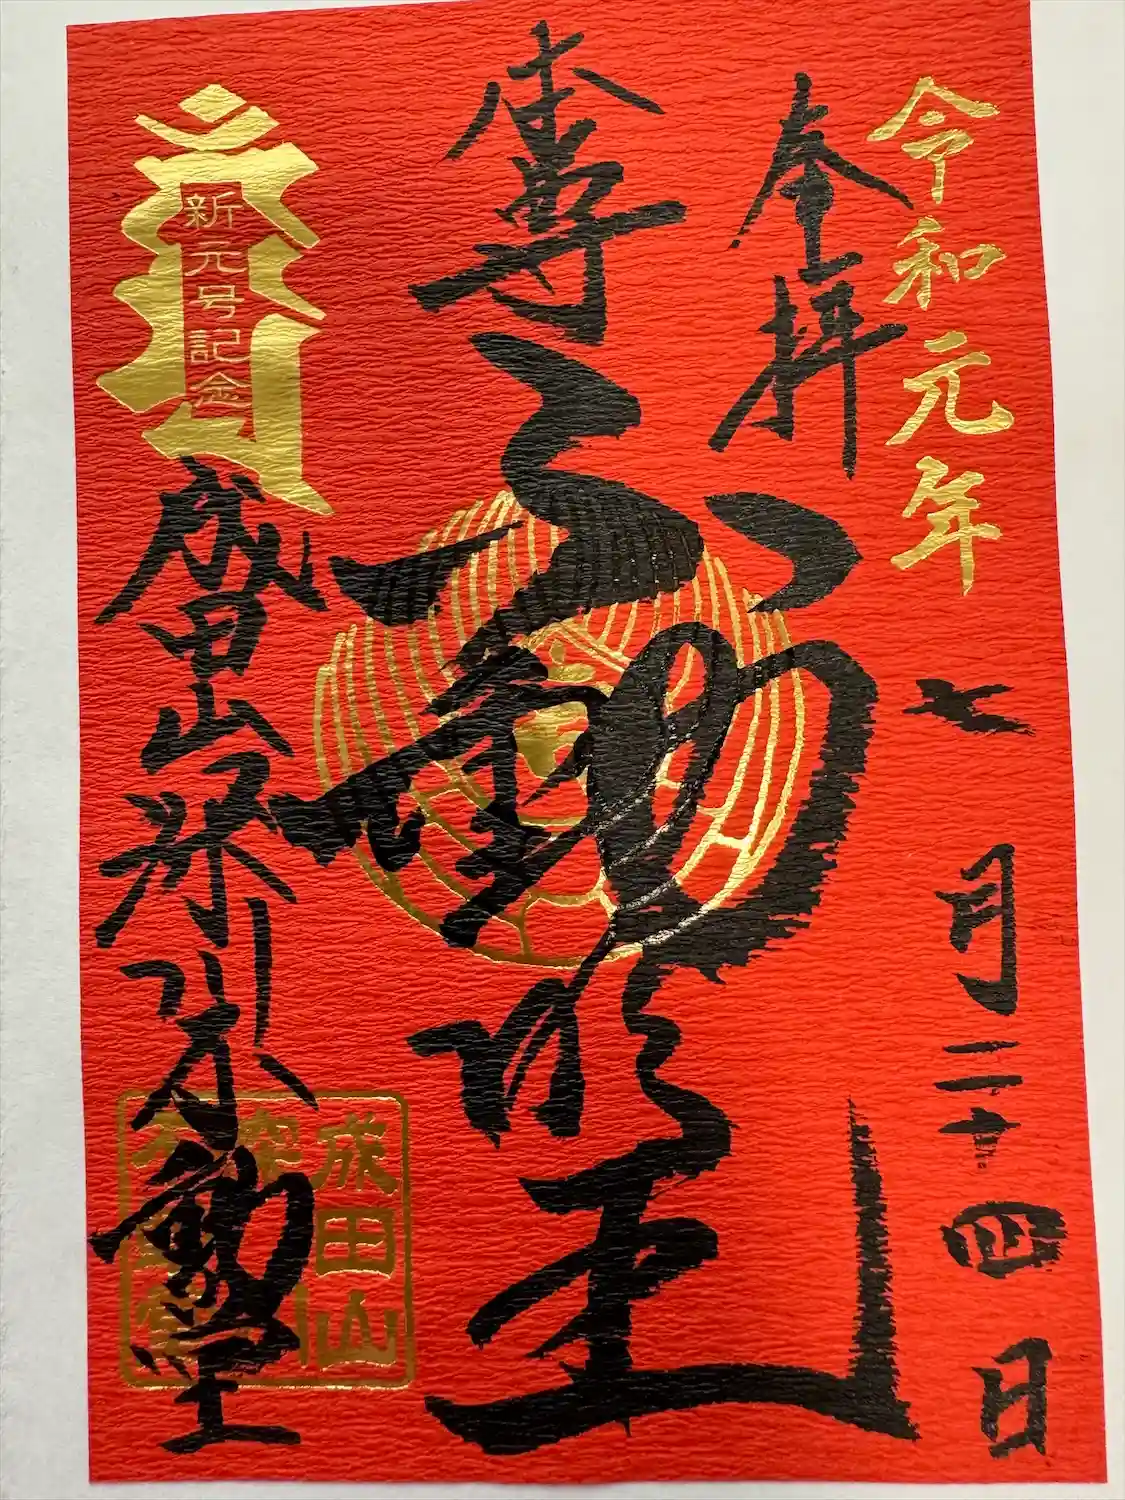 令和元年七月二十四日
奉拝
本尊不動明王
新元号記念
成田山深川不動堂
成田山